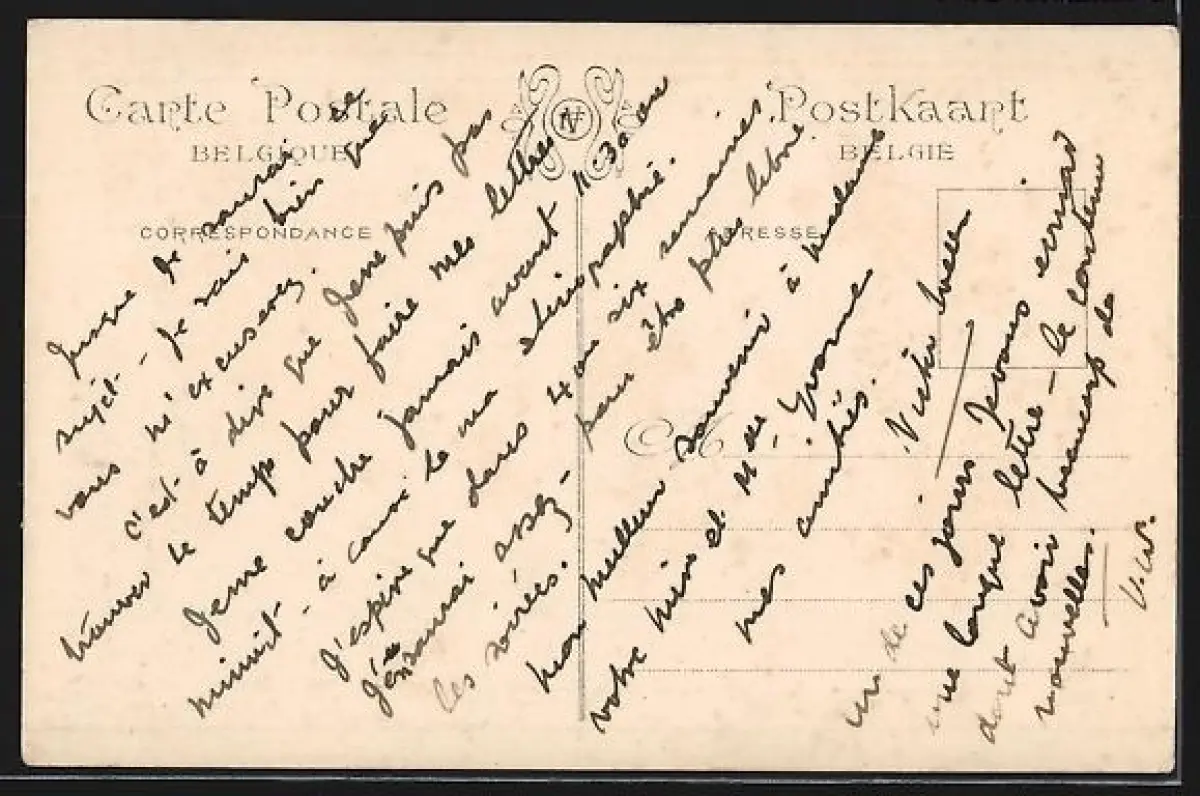 Carte Postale
Postkaart
BELGIQUE
BELGIË
CORRESPONDANCE
ADRESSE
Jusque je saurai ce
sujet - je sais bien que
vous m'excuserez.
c'est-à dire que je ne puis pas
trouver le temps pour faire mes lettres
Je ne couche jamais avant 11.30 ou
minuit - à cause de ma
J'espère que dans 4 ou six semaines
j'en saurai assez - pour être plus libre
les soirées.
Mon meilleur souvenir à Madame
votre mère et Mlle Yvonne
mes amitiés.
Victor
un de ces jours je vous
une longue lettre - le contenu
doit avoir beaucoup de
nouvelles.
V.W.